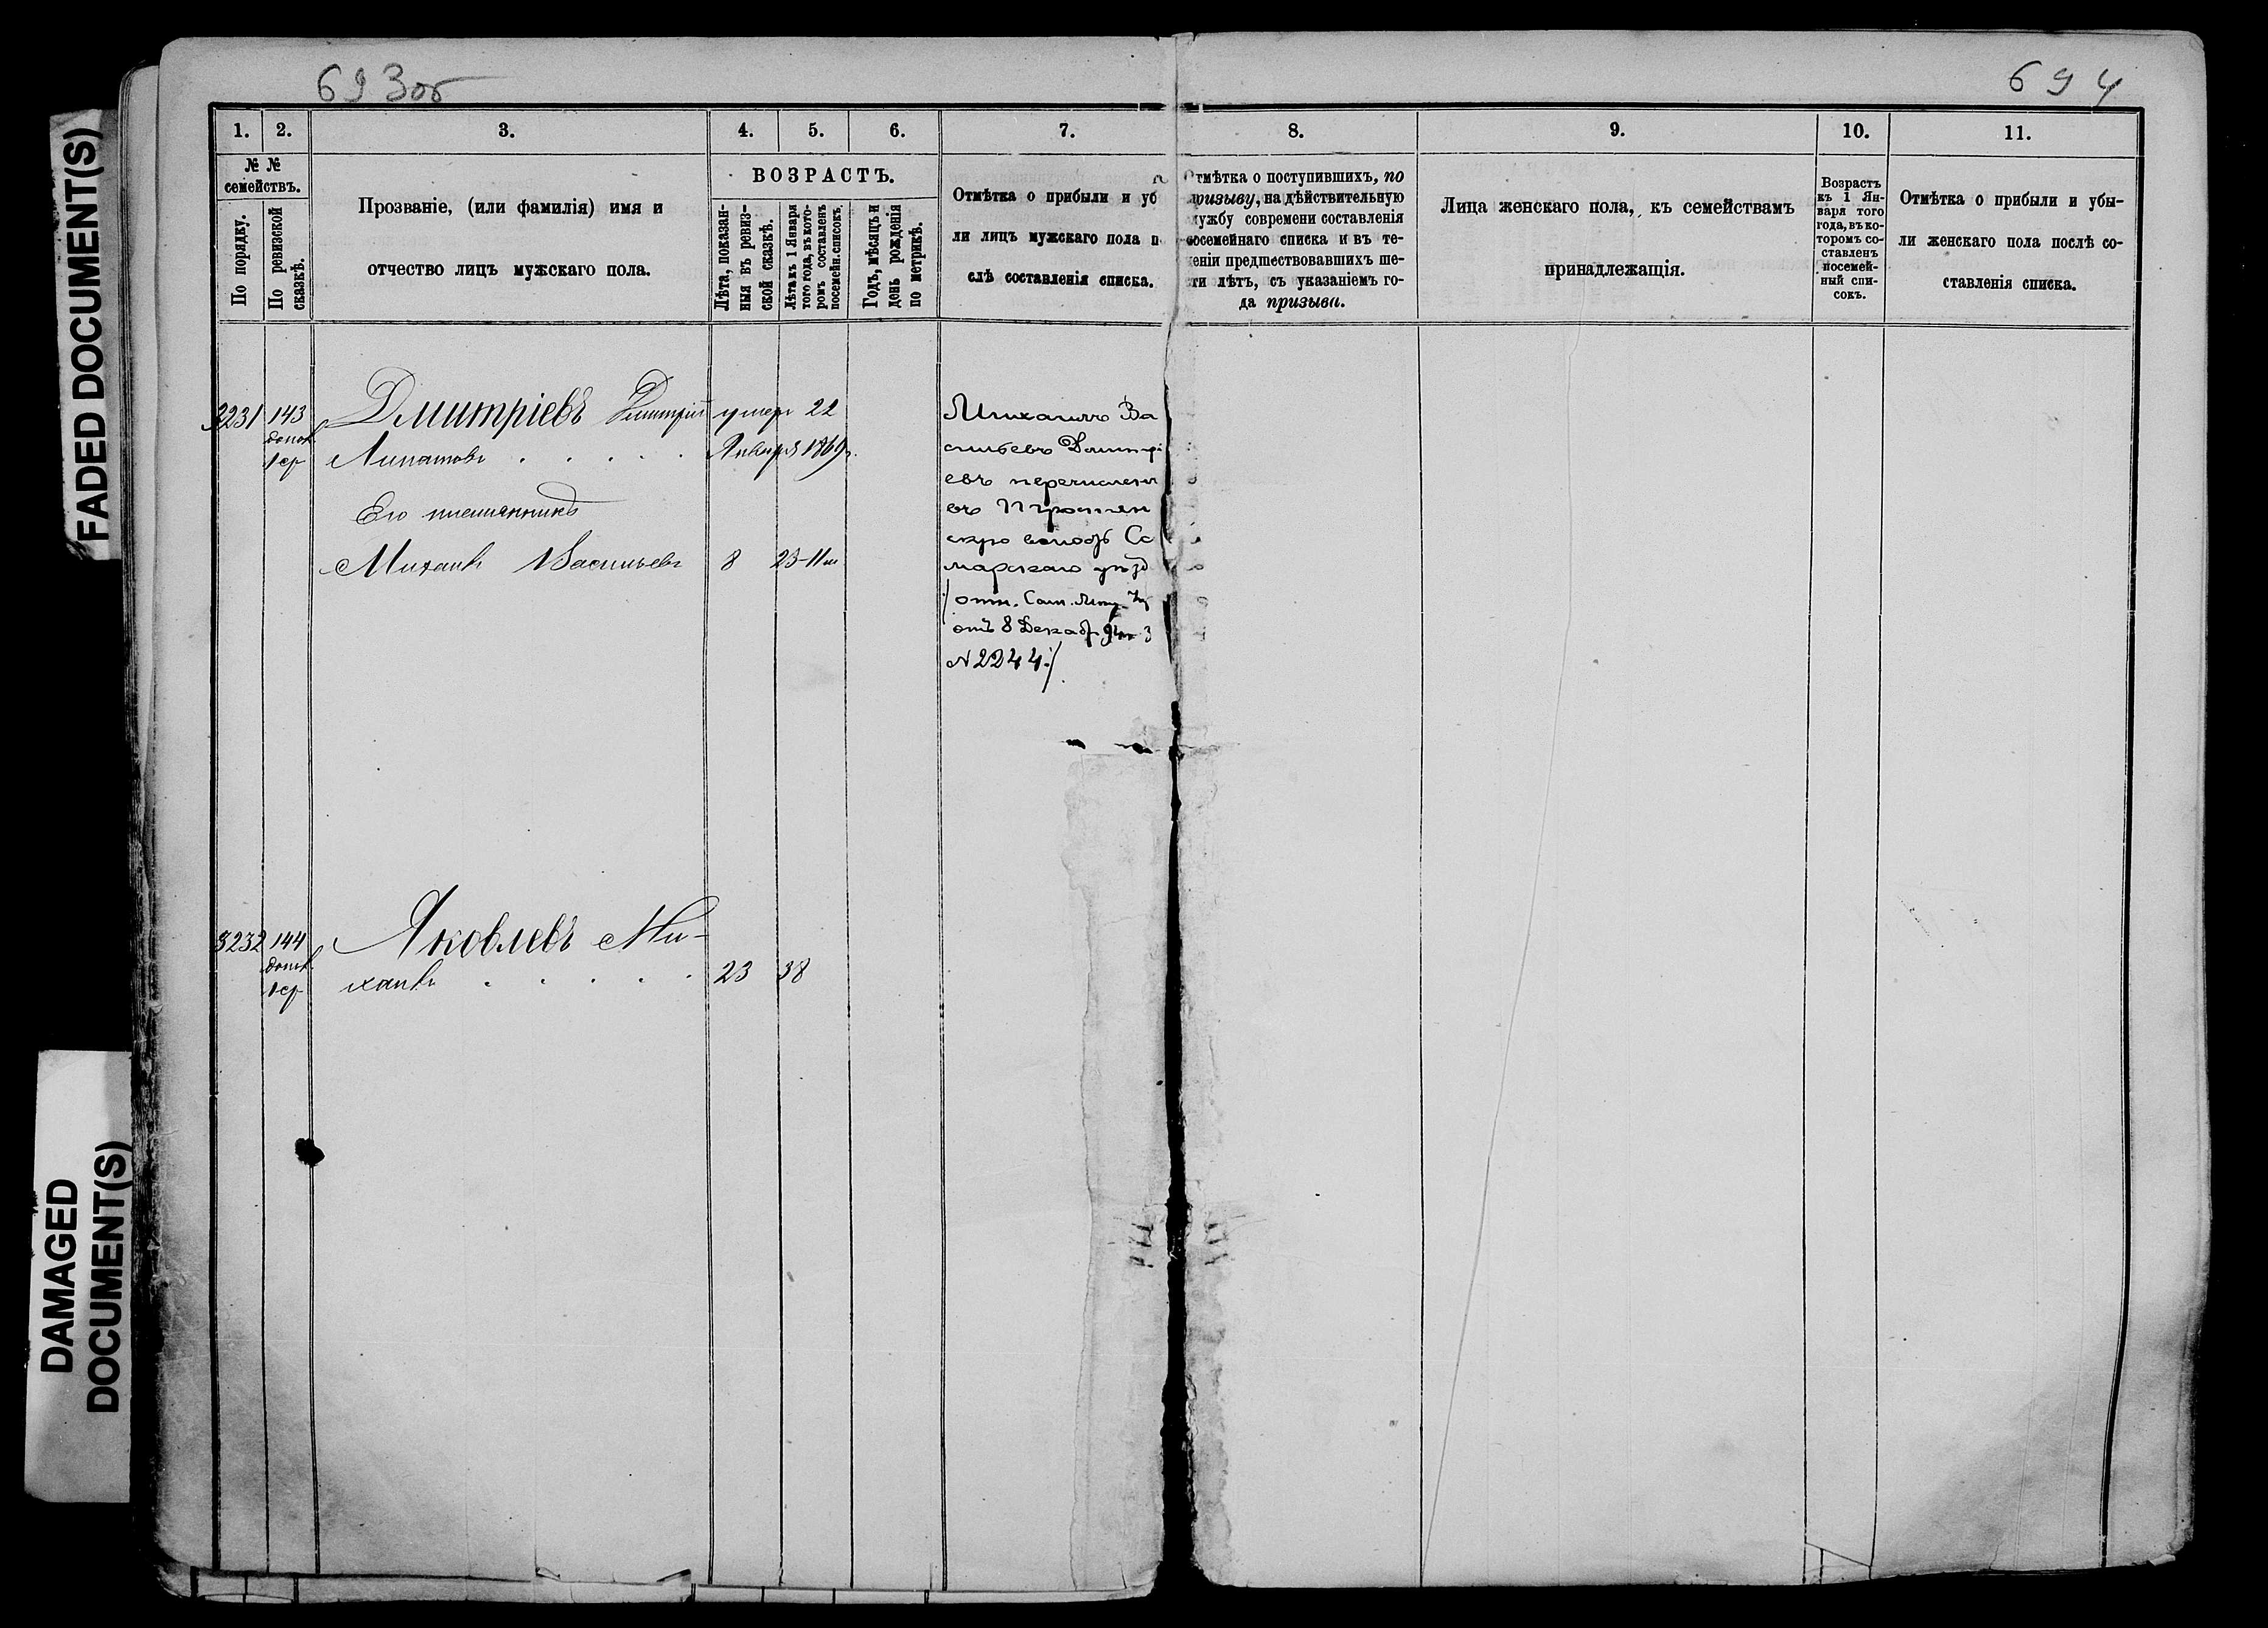 FADED DOCUMENT(S)
DAMAGED
DOCUMENT(S)
693об
694
1.
2.
3.
4.
5.
6.
7.
8.
9.
10.
11.
№ №
семействъ.
По порядку.
По ревизской
сказкѣ.
Прозваніе, (или фамилія) имя и
отчество лицъ мужскаго пола.
ВОЗРАСТЪ.
Лѣта, показан-
ныя въ ревиз-
ской сказкѣ.
Лѣта къ 1 Января
того года, въ кото-
ромъ составленъ
посемейн. списокъ.
Годъ, мѣсяцъ и
день рожденія
по метрикѣ.
Отмѣтка о прибыли и уб
ли лицъ мужскаго пола п
слѣ составленія списка.
Отмѣтка о поступившихъ, по
призыву, на дѣйствительную
лужбу современи составленія
посемейнаго списка и въ те-
ченіи предшествовавшихъ ше-
ти лѣтъ, съ указаніемъ го-
да призыва.
Лица женскаго пола, къ семействамъ
принадлежащія.
Возрастъ
къ 1 Ян-
варя того
года, въ ко-
торомъ со-
ставленъ
посемей-
ный спи-
сокъ.
Отмѣтка о прибыли и убы-
ли женскаго пола послѣ со-
ставленія списка.
3231 143 Дмитріевъ Дмитрій умеръ 22
Липатовъ . . . . . Января 1869г.
Его племянникъ
Михаилъ Васильевъ 8 23-11м
Михаилъ Ва
сильевъ Дмитрі
евъ перечислен
въ
скую волость Са
марскаго уѣзд
отн. Сам.
отъ 8 Декабр
№2244:/
3232 144 Яковлевъ Ми-
хаилъ . . . . . 23 38